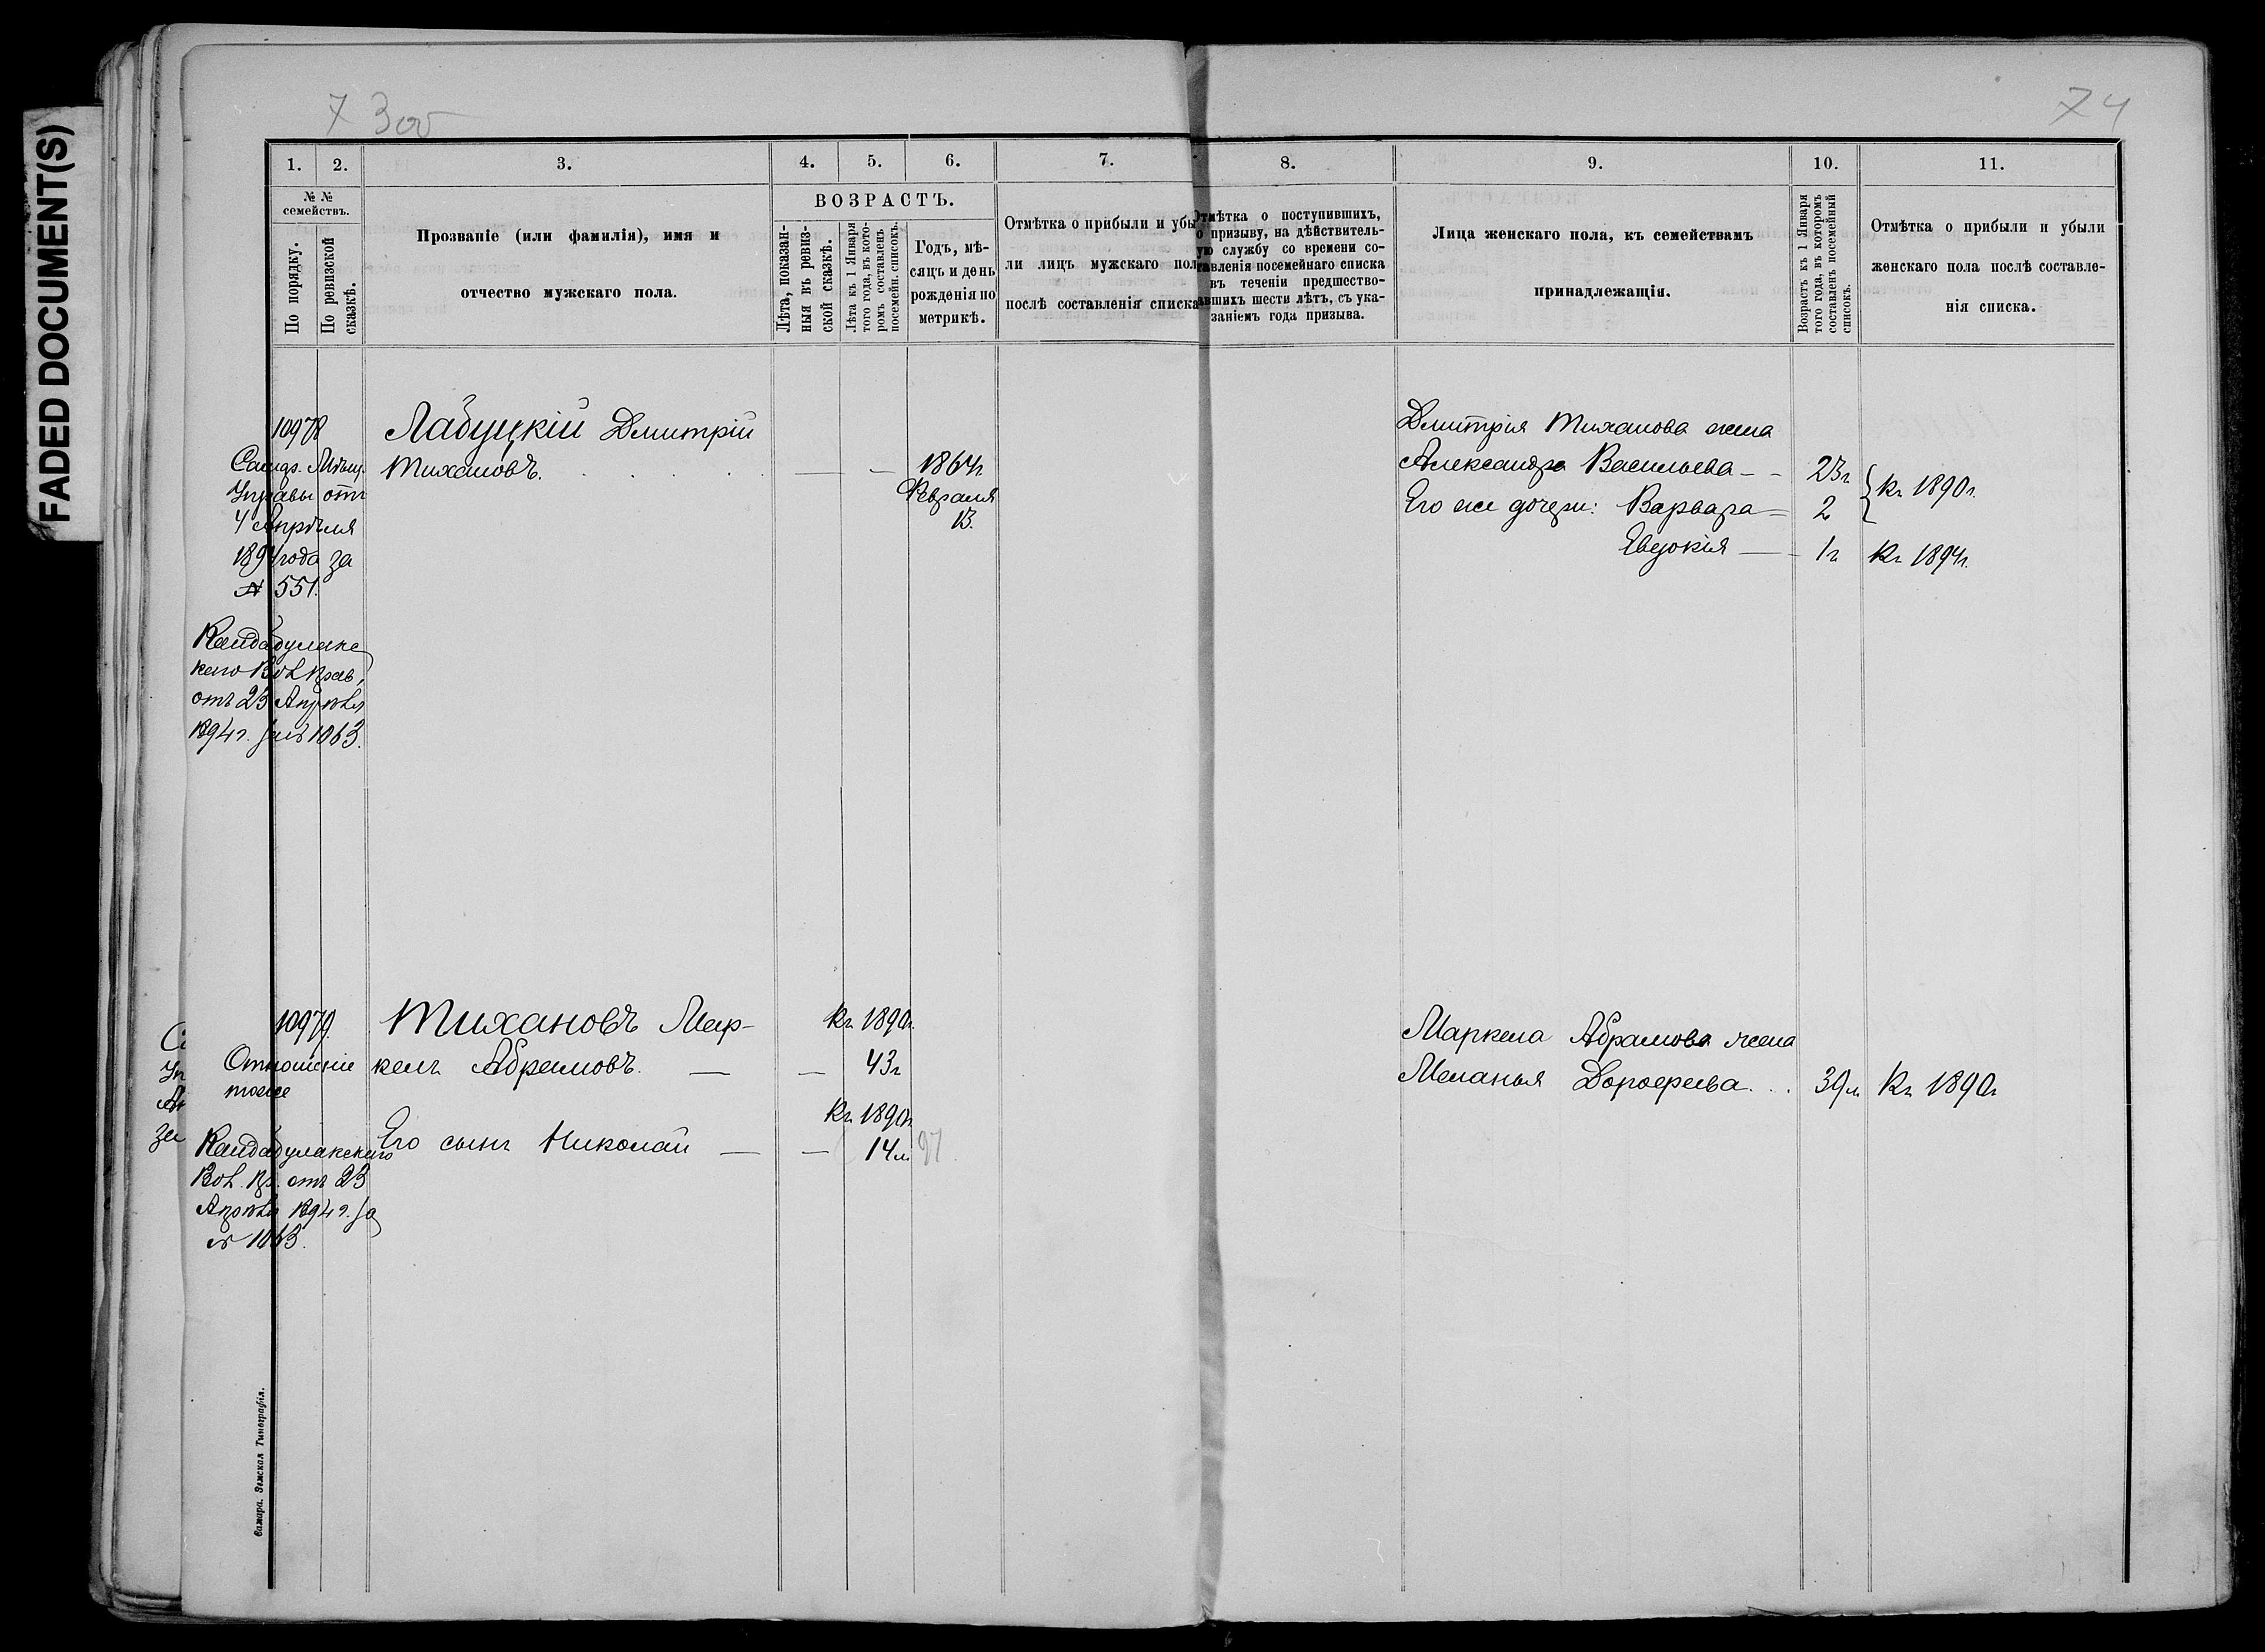 FADED DOCUMENT(S)
7 300
74
1. 2. 3. 4. 5. 6. 7. 8. 9. 10. 11.
№ №
семействъ.
По порядку.
По ревизской
сказкѣ.
Прозваніе (или фамилія), имя и
отчество мужскаго пола.
ВОЗРАСТЪ.
Лѣта, показан-
ныя въ ревиз-
ской сказкѣ.
Лѣта къ 1 Января
того года, въ кото-
ромъ составленъ
посемейн. списокъ.
Годъ, мѣ-
сяцъ и день
рожденія по
метрикѣ.
Отмѣтка о прибыли и убы
ли лицъ мужскаго пол
послѣ составленія списка
Отмѣтка о поступившихъ,
о призыву, на дѣйствитель-
ую службу со времени со-
тавленія посемейнаго списка
въ теченіи предшество-
авшихъ шести лѣтъ, съ ука-
заніемъ года призыва.
Лица женскаго пола, къ семействамъ
принадлежащія.
Возрастъ къ 1 Января
того года, въ которомъ
составленъ посемейный
списокъ.
Отмѣтка о прибыли и убыли
женскаго пола послѣ составле-
нія списка.
10978
Самар. Мѣщ.
Управы отъ
4 Апрѣля
1894 года за
№ 551.
Кандабулакс
каго Вол. Прав.
отъ 23 Апрѣля
1894 г. за № 1063.
Лабуцкій Дмитрій
Тихановъ.
1864г
Февраля
13.
Дмитрія Тиханова жена
Александра Васильева 23г
Его же дочери: Варвара 2
Къ 1890г.
Евдокія 1г Къ 1894г.
10979.
Отношеніе
тоже
Кандабулакскаго
Вол. Пр. отъ 23
Апрѣля 1894 г. за
№ 1063.
Тихановъ Мар-
келъ Абрамовъ.
Къ 1890г.
43г
Его сынъ Николай
Къ 1890г
14л. 97.
Маркела Абрамова жена
Меланья Дорофеева. . . 39л Къ 1890г
Самара. Земская Типографія.